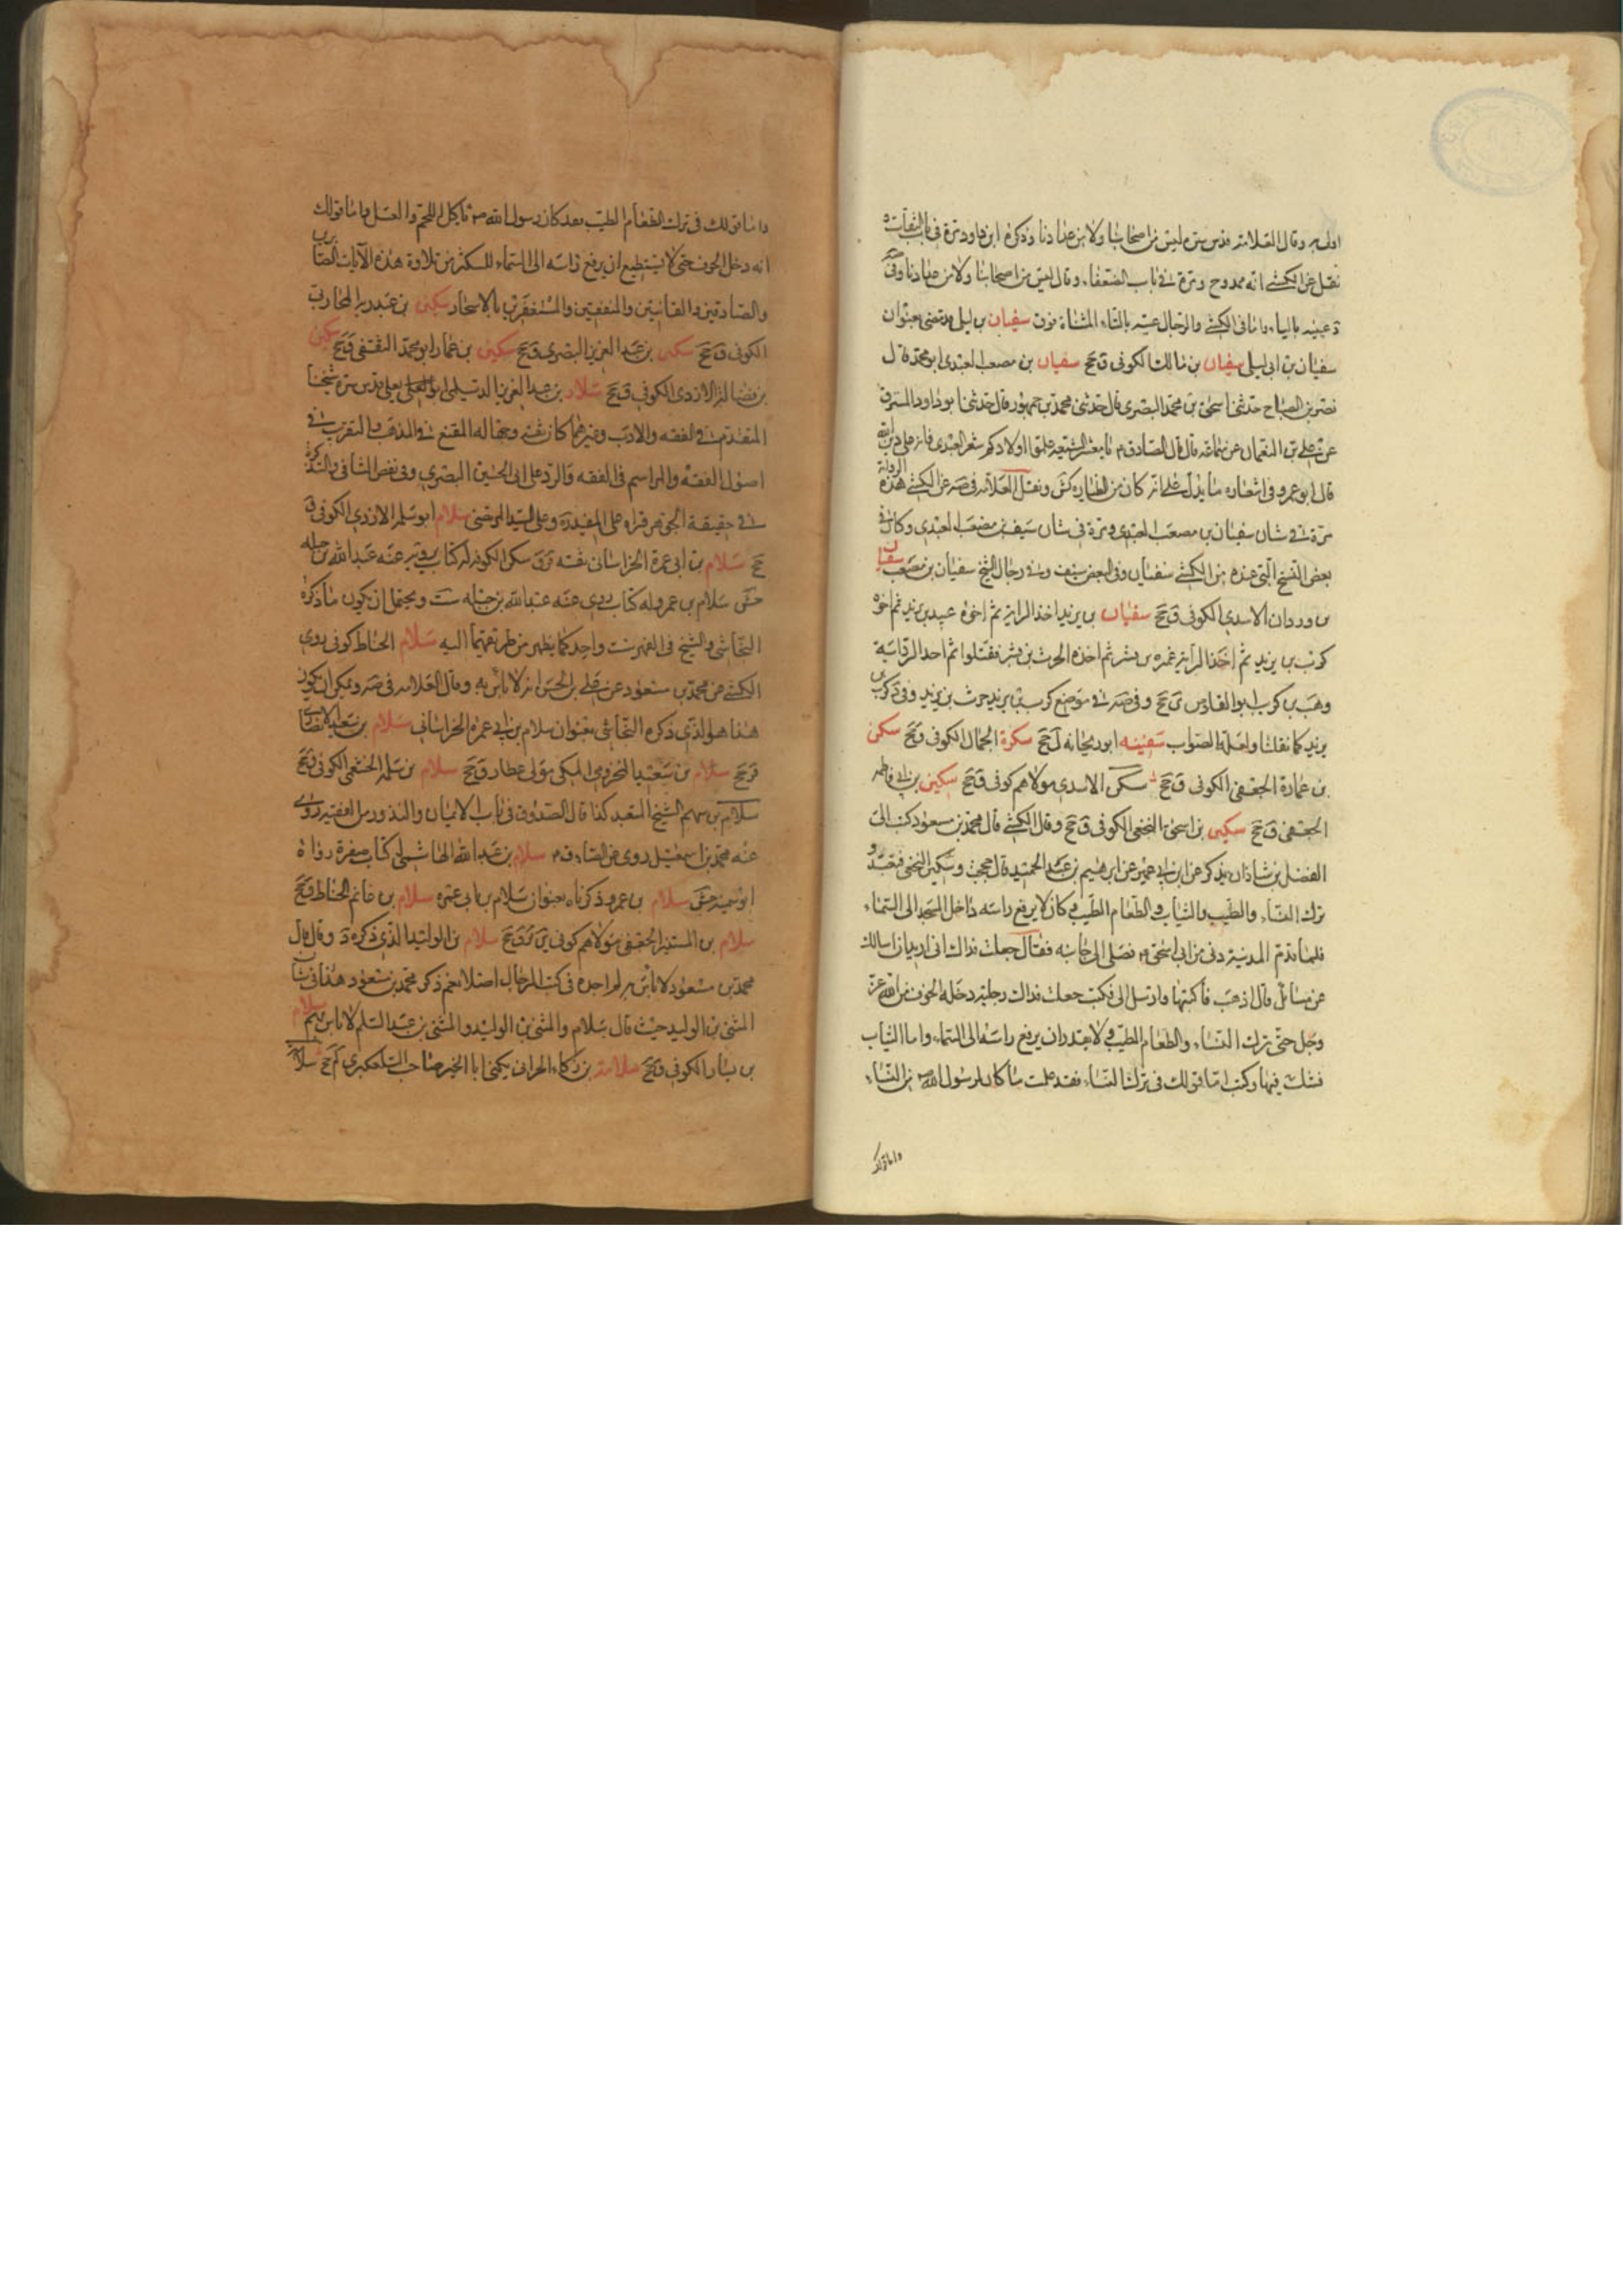 اولى به وقال العلامة قدس سره ليس من اصحابنا ولا من عدادنا وذكره ابن داود مرة فى باب الثقات
نقل عن الكشى انه ممدوح ومرة فى باب الضعفاء وقال ليس من اصحابنا ولا من عدادنا وفى
د عيينه بالياء واما فى الكشى والرجال عتبه بالتاء المثناة فوق سفيان بن ليلى مر بعنوان
سفيان بن ابى ليلى سفيان بن مالك الكوفى ق جخ سفيان بن مصعب العبدى ابو محمد ق ل
نصر بن الصباح حدثنا اسحق بن محمد البصرى قال حدثنى محمد بن جمهور قال حدثنى ابو داود المسترق
عن على بن النعمان عن سماعة قال قال الصادق م يا معشر الشيعه علموا اولادكم شعر العبدى فانه على دين الله
قال ابو عمرو فى اشعاره ما يدل على انه كان من الطيارة كش ونقل العلامة فى صه عن الكشى هذه الرواية
مرة فى شان سفيان بن مصعب العبدى ومرة فى شان سيف بن مصعب العبدى وكان فى
بعض النسخ التى عنده من الكشى سفيان وفى البعض سيف وفى رجال الشيخ سفيان بن مصعب سفيان
بن وردان الاسدى الكوفى ق جخ سفيان بن يزيد اخذ الراية ثم اخوه عبيد بن يزيد ثم اخوه
كرب بن يزيد ثم اخذ الراية عميرة بن بشر ثم اخذه الحرث بن بشر فقتلوا ثم اخذ الراية
وهب بن كريب ابو القلوص ى جخ وفى صه فى موضع كرب بن يزيد حرث بن يزيد وفى د كرب بن
يزيد كما نقلنا ولعله الصواب سفينه ابو ريحانه ل جخ سكرة الجمال الكوفى ق جخ سكن
بن عمارة الجعفى الكوفى ق جخ سكن الاسدى مولاهم كوفى ق جخ سكين بن ابى فاطمه
الجعفى ق جخ سكين بن اسحق النخعى الكوفى ق جخ وقال الكشى قال محمد بن مسعود كتب الى
الفضل بن شاذان يذكر عن ابن ابى عمير عن ابرهيم بن عبد الحميد قال حججت وسكين النخعى فتعبد و
ترك النساء والطيب والثياب والطعام الطيب وكان لا يرفع راسه داخل المسجد الى السماء
فلما قدم المدينة دنى من ابى اسحق م فصلى الى جانبه فقال جعلت فداك انى اريد ان اسالك
عن مسائل قال اذهب فاكتبها وارسل الى فكتب جعلت فداك رجل دخله الخوف من الله عز
وجل حتى ترك النساء والطعام الطيب ولا يقدر ان يرفع راسه الى السماء واما الثياب
فشك فيها وكتب اما قولك فى ترك النساء فقد علمت ما كان لرسول الله ص من النساء
واما قولك
واما قولك فى ترك الطعام الطيب فقد كان رسول الله ص ياكل اللحم والعسل واما قولك
انه دخل الخوف حتى لا يستطيع ان يرفع راسه الى السماء فليكثر من تلاوة هذه الآيات الصابرين
والصادقين والقانتين والمنفقين والمستغفرين بالاسحار سكين بن عبد ربه المحاربى
الكوفى ق جخ سكين بن عبد العزيز البصرى ق جخ سكين بن عمار ابو محمد الثقفى ق جخ سكين
بن فضالة الازدى الكوفى ق جخ سلار بن عبد العزيز الديلمى ابو يعلى قدس سره شيخنا
المتقدم فى الفقه والادب وغيرهما كان ثقة وجها له المقنع فى المذهب والتقريب فى
اصول الفقه والمراسم فى الفقه والرد على ابى الحسين البصرى وفى نقض الشافى والتذكرة
فى حقيقة الجوهر قرا على المفيد ره وعلى السيد المرتضى سلام ابو سلمه الازدى الكوفى ق
جخ سلام بن ابى عمرة الخراسانى ثقه ق سكن الكوفه له كتاب يرويه عنه عبد الله بن جبله
جش سلام بن عمرو له كتاب روى عنه عبد الله بن جبله ست ويحتمل ان يكون ما ذكره
النجاشى والشيخ فى الفهرست واحد كما يظهر من طريقهما اليه سلام الحناط كوفى روى
الكشى عن محمد بن مسعود عن على بن الحسن انه لا باس به وقال العلامه فى صه ويمكن ان يكون
هذا هو الذى ذكره النجاشى بعنوان سلام بن ابى عمره الخراسانى سلام بن سعيد الانصارى
ق جخ سلام بن سعيد المخزومى المكى مولى عطار ق جخ سلام بن سلمه الخثعمى الكوفى ق جخ
سلام بن سهم الشيخ المتعبد كذا قال الصدوق فى باب الايمان والنذور من الفقيه روى
عنه محمد بن اسمعيل روى عن الصادق م سلام بن عبد الله الهاشمى له كتاب صغيرة رواه
ابو سمينه جش سلام بن عمرو ذكرناه بعنوان سلام بن ابى عمرة سلام بن غانم الحناط ق جخ
سلام بن المستنير الجعفى مولاهم كوفى ين قر ق جخ سلام بن الوليد الذى ذكره د وقال قال
محمد بن مسعود لا باس به لم اجده فى كتب الرجال اصلا نعم ذكر محمد بن مسعود هذا فى شان
المثنى بن الوليد حيث قال سلام والمثنى بن الوليد والمثنى بن عبد السلم لا باس بهم سلام
بن يسار الكوفى ق جخ سلامه بن ذكاء الحرانى يكنى ابا الخير صاحب التلعكبرى لم جخ سلامه